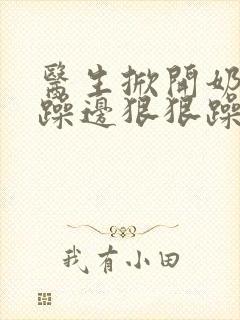 醫生掀開奶
躁邊狠狠躁
我有小田